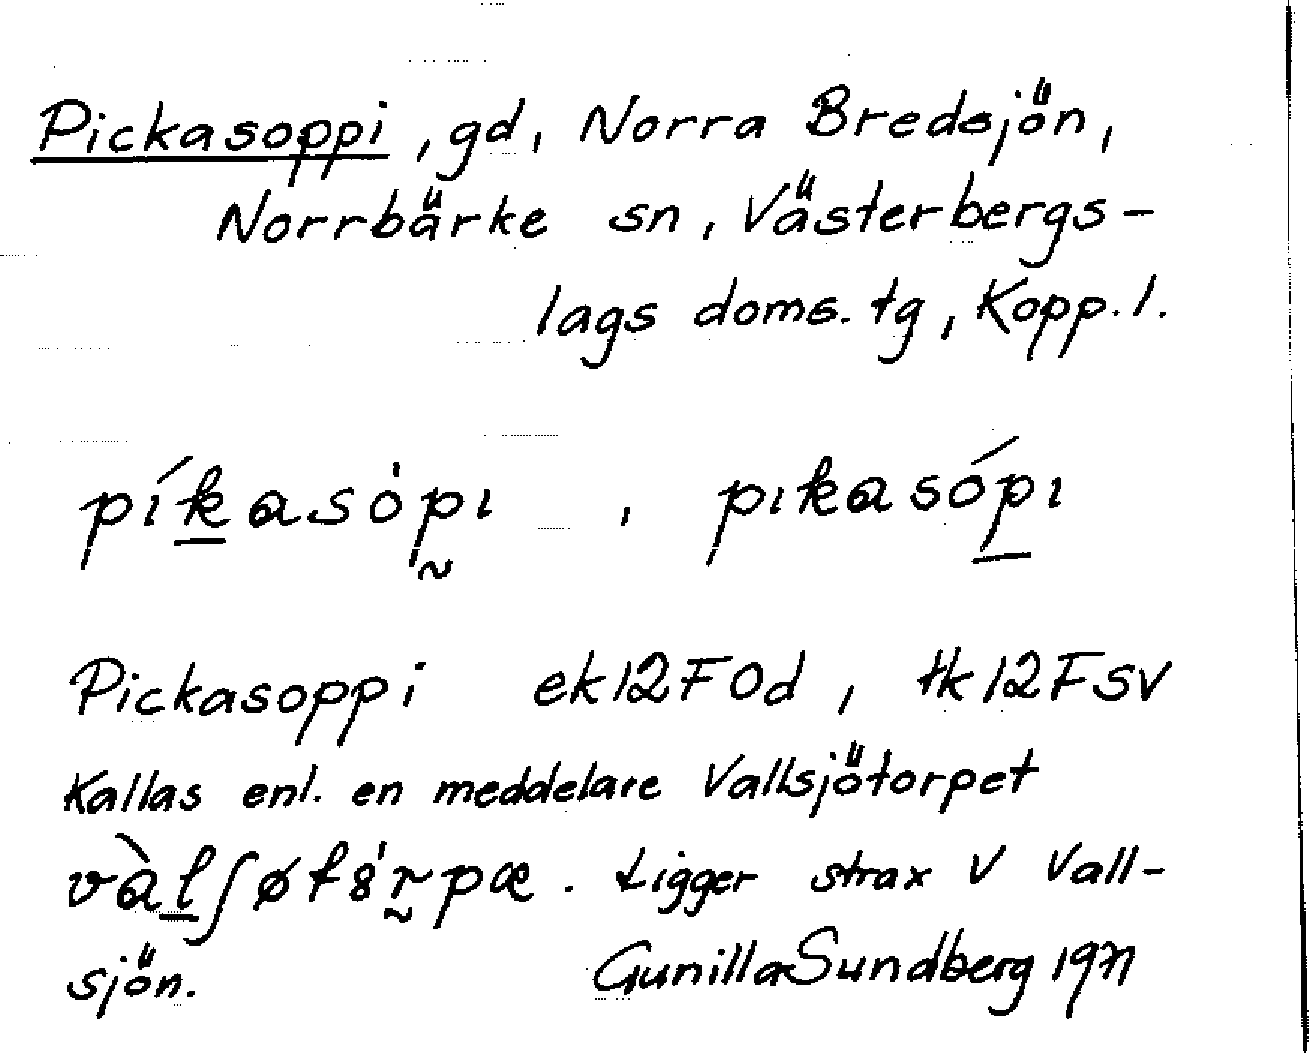 Pickasoppi, gd, Norra Bredsjön,
Norrbärke sn, Västerbergs-
lags doms. tg, Kopp. l.
pík̲asȯp̰ı, pıkasóp̲ı
Pickasoppi ek12F0d, tk12FSV
Kallas enl. en meddelare Vallsjötorpet
vàl̲ʃøt8̇r̰pæ. Ligger strax V Vall-
sjön. Gunilla Sundberg 1971